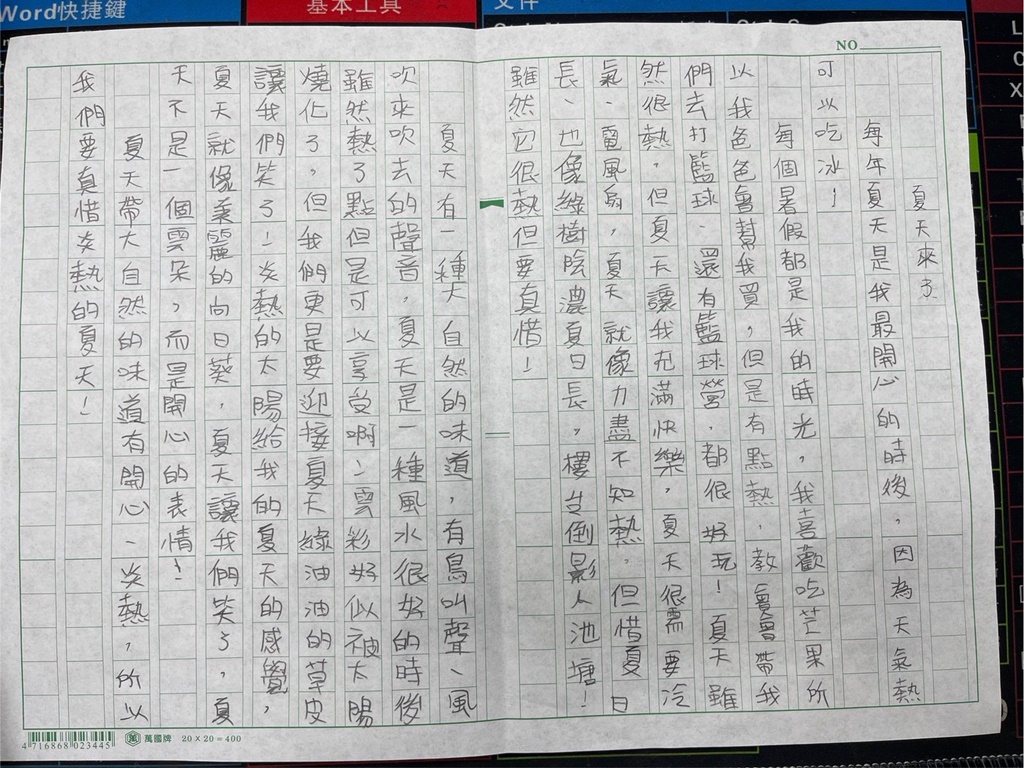 Word快捷鍵
基本工具
文件
NO
夏天來了
每年夏天是我最開心的時後，因為天氣熱
可以吃冰！
每個暑假都是我的時光，我喜歡吃芒果所
以我爸爸會幫我買，但是有點熱，教會會帶我
們去打籃球，還有籃球營，都很好玩！夏天雖
然很熱，但夏天讓我充滿快樂，夏天很需要冷
氣、電風扇，夏天就像力盡不知熱，但惜夏日
長、也像綠樹陰濃夏日長，樓台倒影人池塘！
雖然它很熱但要真惜！
夏天有一種大自然的味道，有鳥叫聲、風
吹來吹去的聲音，夏天是一種風水很好的時後
雖然熱了點但是可以享受啊！雲彩好似被太陽
燒化了，但我們更是要迎接夏天綠油油的草皮
讓我們笑了！炎熱的太陽給我的夏天的感覺，
夏天就像美麗的向日葵，夏天讓我們笑了，夏
天不是一個雲朵，而是開心的表情！
夏天帶大自然的味道有開心、炎熱，所以
我們要真惜炎熱的夏天！
4716868023445
萬國牌 20×20=400